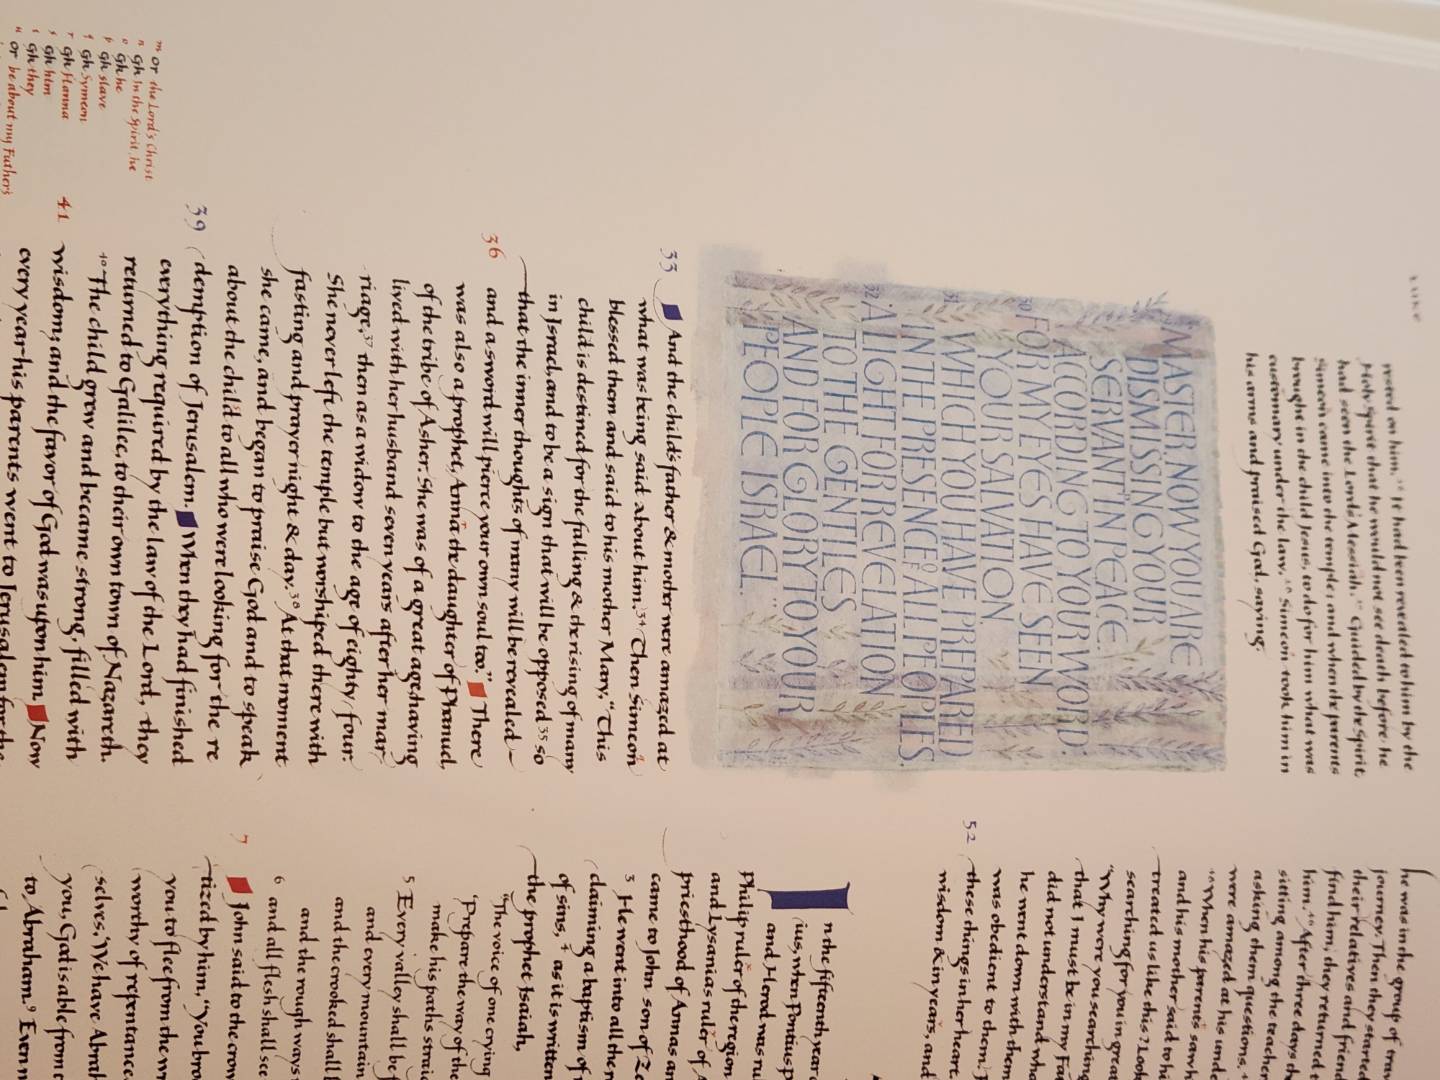 LUKE
rested on him. 26 It had been revealed to him by the
Holy Spirit that he would not see death before he
had seen the Lord's Messiah. 27 Guided by the Spirit,
Simeon came into the temple; and when the parents
brought in the child Jesus, to do for him what was
customary under the law, 28 Simeon took him in
his arms and praised God, saying,
29 "MASTER, NOW YOU ARE
DISMISSING YOUR
SERVANT IN PEACE,
ACCORDING TO YOUR WORD;
30 FOR MY EYES HAVE SEEN
YOUR SALVATION,
31 WHICH YOU HAVE PREPARED
IN THE PRESENCE OF ALL PEOPLES,
32 A LIGHT FOR REVELATION
TO THE GENTILES
AND FOR GLORY TO YOUR
PEOPLE ISRAEL."
33 And the child's father & mother were amazed at
what was being said about him. 34 Then Simeon
blessed them and said to his mother Mary, "This
child is destined for the falling & the rising of many
in Israel, and to be a sign that will be opposed 35 so
that the inner thoughts of many will be revealed—
and a sword will pierce your own soul too." There
36 was also a prophet, Anna the daughter of Phanuel,
of the tribe of Asher. She was of a great age, having
lived with her husband seven years after her mar
riage, 37 then as a widow to the age of eighty-four.
She never left the temple but worshiped there with
fasting and prayer night & day. 38 At that moment
she came, and began to praise God and to speak
about the child to all who were looking for the re
39 demption of Jerusalem. When they had finished
everything required by the law of the Lord, they
returned to Galilee, to their own town of Nazareth.
40 The child grew and became strong, filled with
41 wisdom; and the favor of God was upon him. Now
every year his parents went to Jerusalem for the
m Or the Lord's Christ
n Gk In the Spirit, he
o Gk he
p Gk slave
q Gk Symeon
r Gk Hanna
s Gk him
t Gk they
u Or be about my Father's
he was in the group of trav
journey. Then they started
their relatives and friend
find him, they returned t
him. 46 After three days th
sitting among the teacher
asking them questions. 47
were amazed at his unde
48 When his parents saw h
and his mother said to hi
treated us like this? Look
searching for you in great
"Why were you searching
that I must be in my Fa
did not understand wha
he went down with them
was obedient to them.
52 these things in her heart.
wisdom & in years, and
In the fifteenth year
ius, when Pontius P
and Herod was ru
Philip ruler of the region
and Lysanias ruler of
priesthood of Annas an
came to John son of Ze
3 He went into all the r
claiming a baptism of
of sins, 4 as it is written
the prophet Isaiah,
"The voice of one crying
'Prepare the way of the
make his paths straig
5 Every valley shall be f
and every mountain
and the crooked shall
and the rough ways
6 and all flesh shall see
7 John said to the crow
tized by him, "You bro
you to flee from the wr
worthy of repentance.
selves, 'We have Abrah
you, God is able from t
to Abraham. 9 Even n